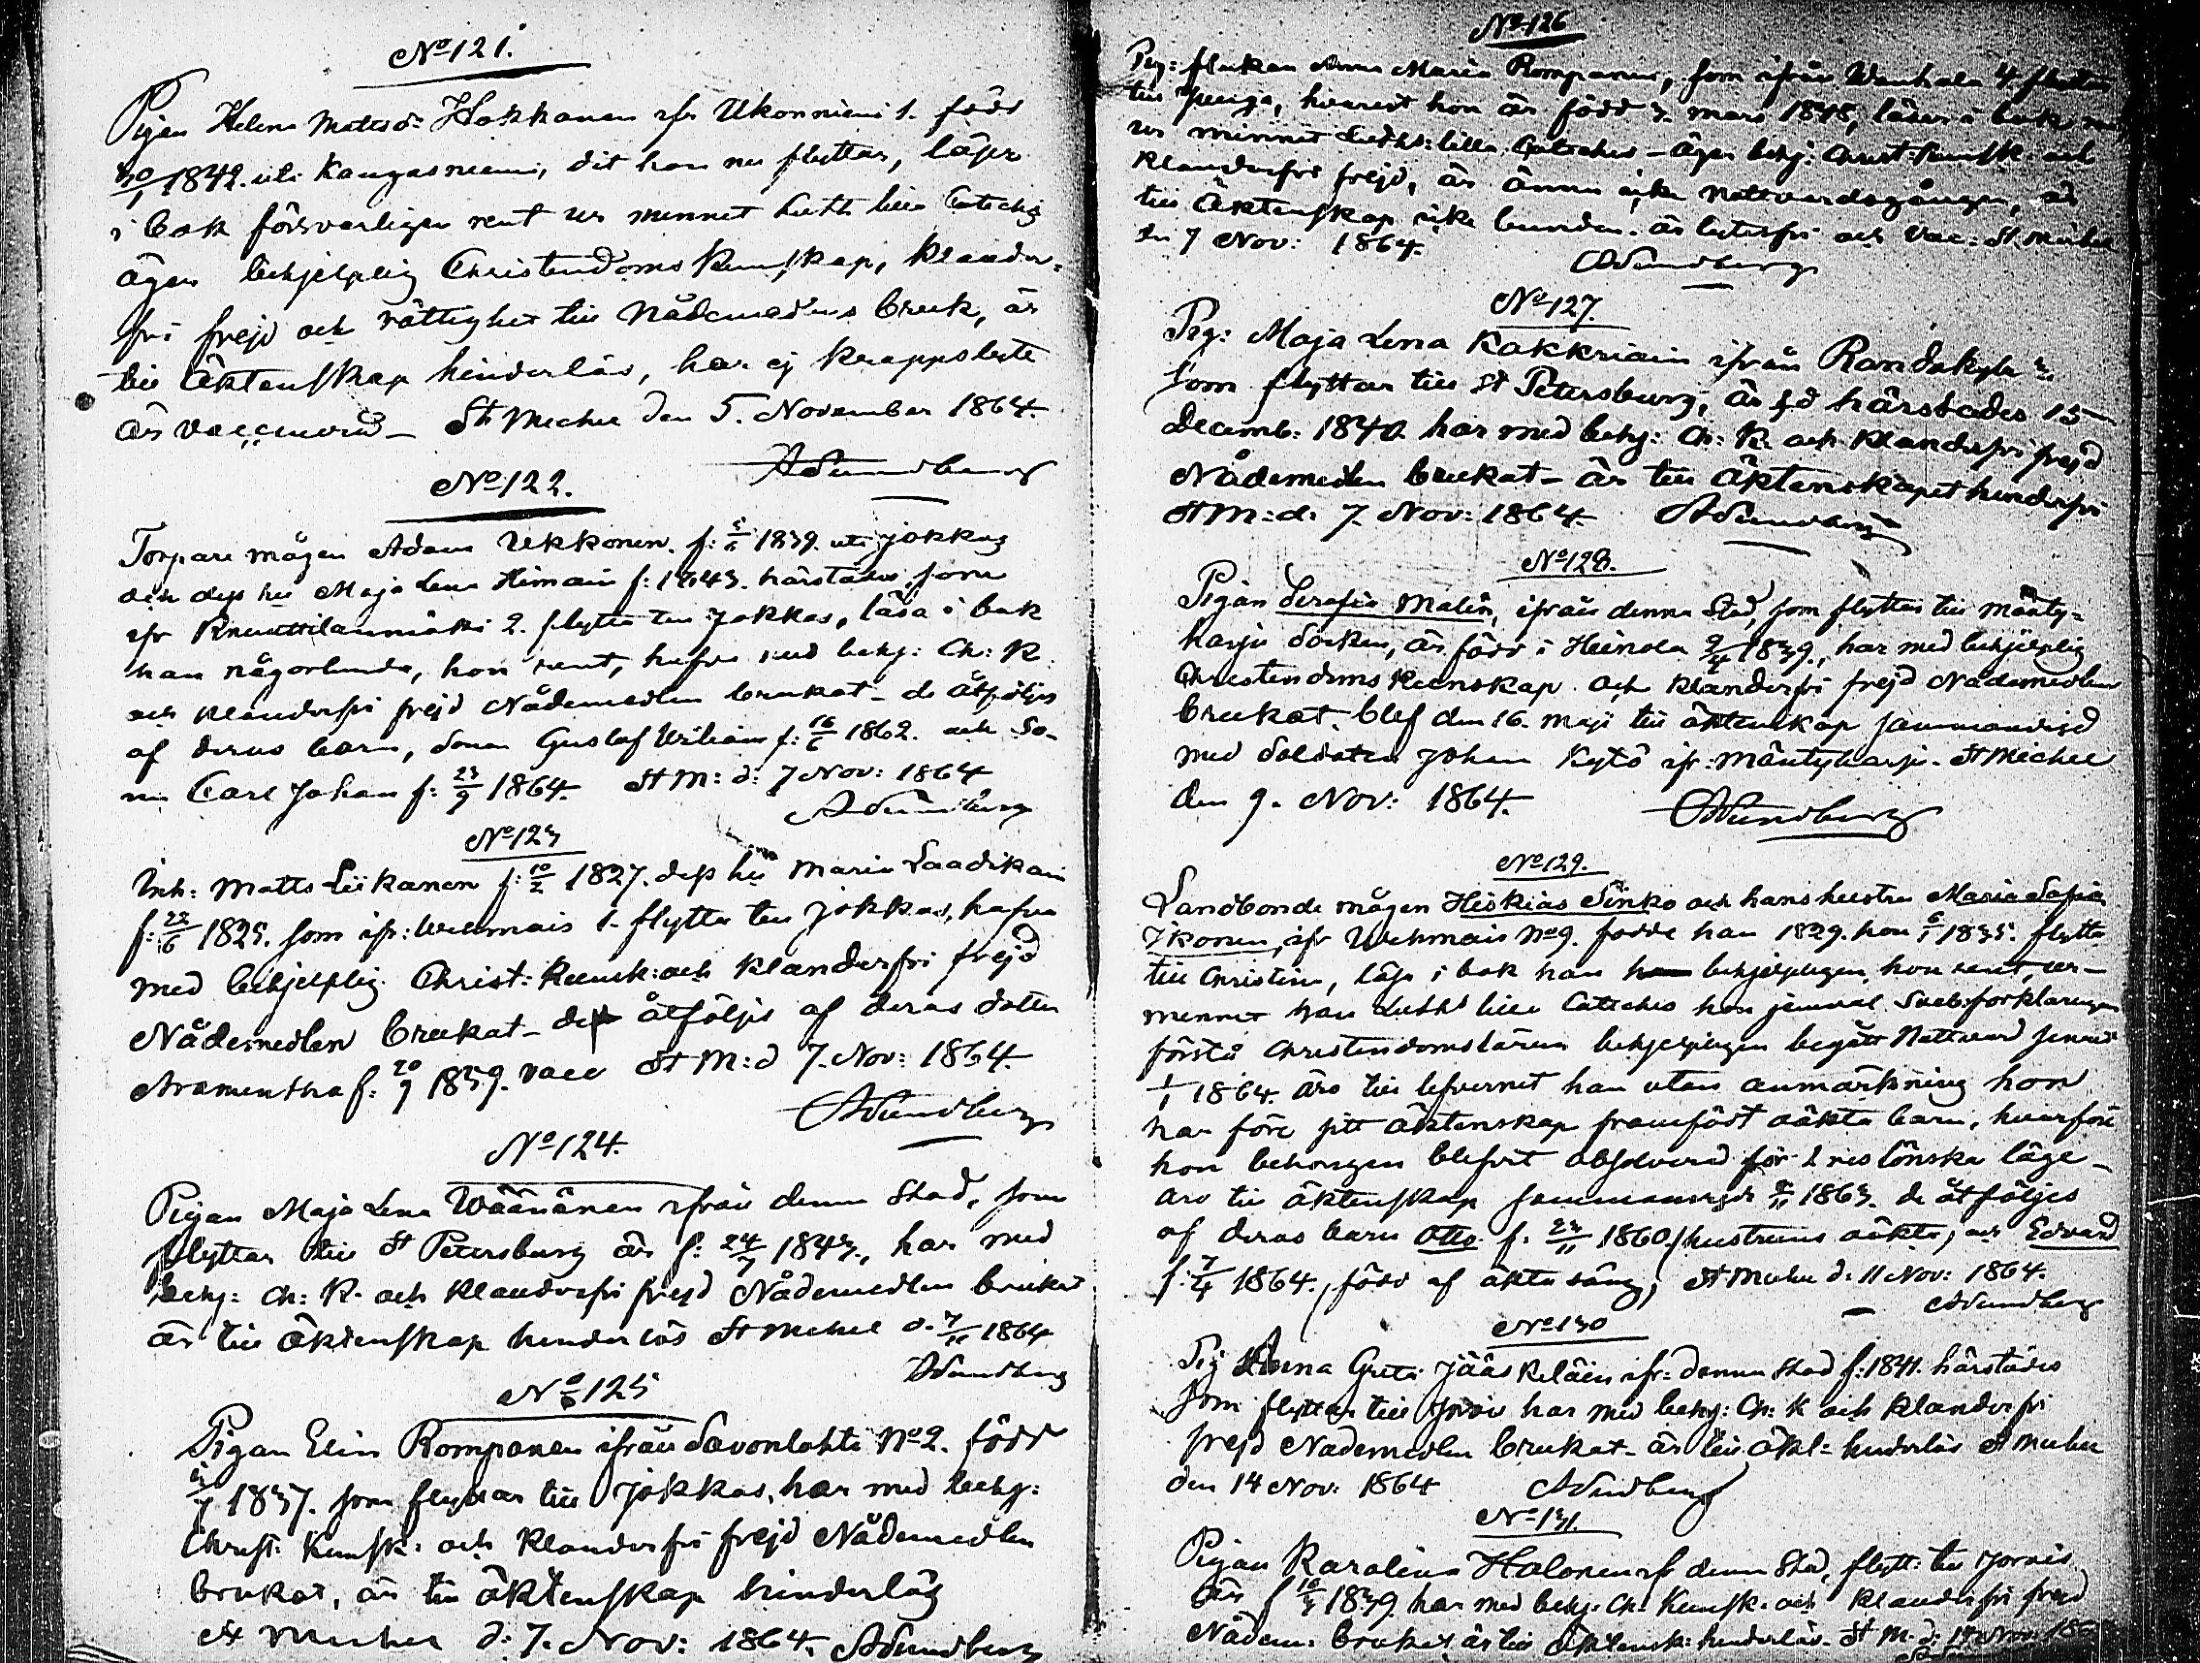 No 121.
Pigan Helena Mattsdr Hokkanen ifr Ukonniemi 1. född
1842. uti Kangasniemi, dit hon nu flyttar, läser
i bok försvarligen rent ur minnet Luth lilla Catechis
äger behjelplig Christendoms Kunskap, klander-
fri frejd och rättighet till Nådemedlens bruk, är
till Äktenskap hinderlös, har ej
är vaccinerad – St Michel den 5. November 1864.
ASundberg
No 122.
Torpare mågen Adam Ukkonen. f: 1839. uti Jokkas
och dess hu Maja Lena Himain f: 1843. härstädes, som
ifr Knuuttilanmäki 2. flytta till Jokkas, läsa i bok
han någorlunda, hon rent, hafva med behj: Ch: K.
och klanderfri frejd Nådemedlen brukat – de åtföljes
af deras barn, sonen Gustaf Wilhelm f: 16/6 1862. och So-
nen Carl Johan f: 23/9 1864. St M: d: 7 Nov: 1864
ASundberg
No 123
Inh: Matts Liikanen f: 10/2 1827. dess hu Maria Laadikain
f: 22/6 1825. som ifr: Wehmais 1. flytta till Jokkas, hafva
med behjelplig Christ: Kunsk: och klanderfri frejd
Nådemedlen brukat – de åtföljes af deras dotter
Aramintha f: 20/9 1859. vacc St M: d 7. Nov: 1864.
ASundberg
No 124.
Pigan Maja Lena Wäänänen ifrån denna Stad, som
flyttar till St Petersburg är f: 24/7 1843., har med
behj: Ch: K. och klanderfri frejd Nådemedlen brukat
är till äktenskap hinderlös St Michel d. 7/11 1864
ASundberg
No 125
Pigan Elin Romponen ifrån Savonlahti No 2. född
1837. som flyttar till Jokkas, har med behj:
Christ: Kunsk: och klanderfri frejd Nådemedlen
brukat, är till äktenskap hinderlös
St Michel d: 7. Nov: 1864. ASundberg
No 126
Pig: flickan Anna Maria Romponen, som ifrån 4. flyttar
till, hvarest hon är född 3. mars 1848, läser i bok
ur minnet Luths: lilla Cateches – äger behj: Christ: Kunsk. och
klanderfri frejd, är ännu icke nattvardsgången, är
till Äktenskap icke bunden. är lytesfri och Vac: St Michel
den 7 Nov: 1864.
ASundberg
No 127.
Pig: Maja Lena Kokkriain ifrån Randakylä
som flyttar till St Petersburg, är född härstädes 15
Decemb: 1840. har med behj: Ch: K. och klanderfri frejd
Nådemedlen brukat – är till Äktenskapet hinderfri
St M: d: 7. Nov: 1864. ASundberg
No 128.
Pigan Serafia Malin, ifrån denna Stad, som flyttar till Mänty-
harju Socken, är född i Heinola 9/4 1839., har med behjelplig
Christendoms Kunskap och klanderfri frejd Nådemedlen
brukat. blef den 16. maji till äktenskap sammanvigd
med Soldaten Johan Kytö ifr: Mäntyharju. St Michel
den 9. Nov: 1864. ASundberg
No 129.
Landbonde mågen Hiskias Sinko och hans hustru Maria Sofia
Ikonen, ifr Wehmais No 9. födde han 1829. hon 1835. flytta
till Christina, läser i bok han behjelpligen, hon rent, ur-
minnet han Luths lilla Cateches hon jemväl Svebs: förklaringen
förstå Christendomsläran behjelpligen begått Nattvard senast
1/1 1864. äro till lefvernet han utan anmärkning hon
har före sitt äktenskap framfödt oäkta barn, hvarföre
hon behörigen blifvit absolverad för 2 res lönska läge –
äro till äktenskap sammanvigde 1863. de åtföljes
af deras barn Otto f. 23/11 1860. (hustruns oäkta, och Edvard
f: 7/4 1864., född af äkta säng, St Michel d: 11 Nov: 1864.
ASundberg
No 130
Pig Anna Greta Jääskeläin ifr: denna Stad f: 1841. härstädes
som flyttar till Jorois har med behj: Ch: K och klanderfri
frejd Nådemedlen brukat – är till äkt: hinderlös St Michel
den 14 Nov: 1864 ASundberg
No 131.
Pigan Karolina Halonen ifr denna Stad, flytt: till Jorois
är f 1839. har med behj: Ch: Kunsk. och klanderfri frejd
Nådem: brukat är till äktensk: hinderlös. St M. d: 14 Nov: 186